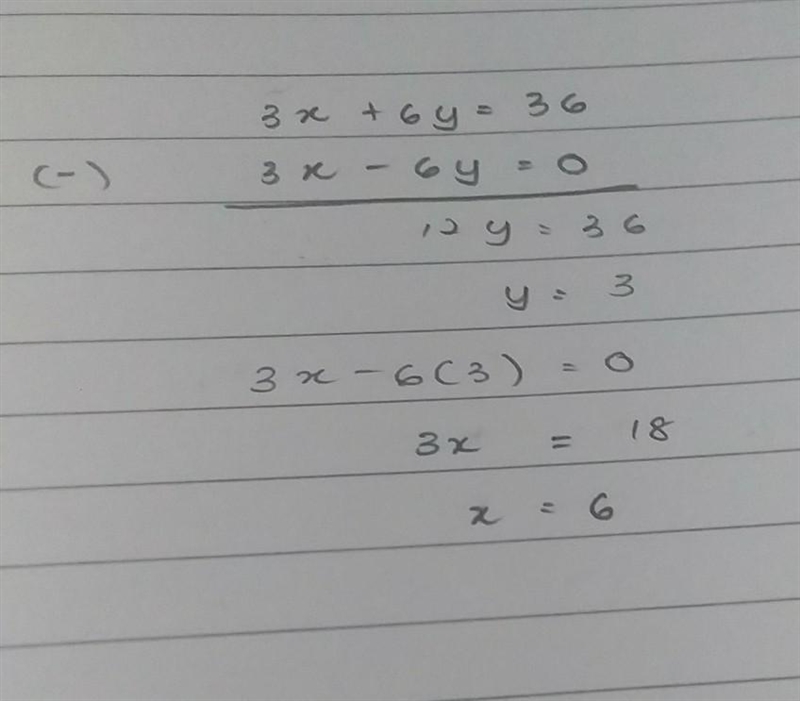 3x + 6y = 36
(-) 3x - 6y = 0
12y = 36
y = 3
3x - 6(3) = 0
3x = 18
x = 6